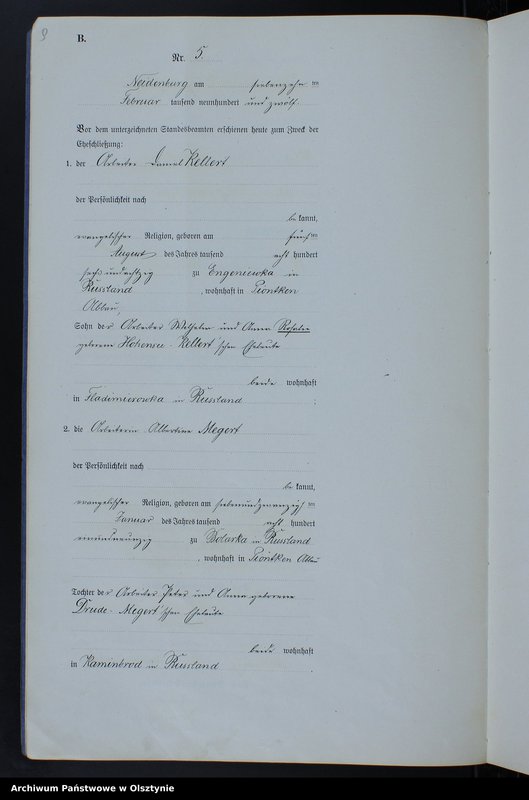 B.
Nr. 5.
Neidenburg am siebenzehn ten
Februar tausend neunhundert und zwölf
Vor dem unterzeichneten Standesbeamten erschienen heute zum Zweck der
Eheschließung:
1. der Arbeiter Daniel Kellert
der Persönlichkeit nach
be kannt,
evangelischer Religion, geboren am fünf ten
August des Jahres tausend acht hundert
sechsundachtzig zu Engeniewka in
Russland, wohnhaft in Piontken
Abbau,
Sohn der Arbeiter Wilhelm und Anna Rosalie
geborene Hohensee - Kellert'schen Eheleute
beide wohnhaft
in Fladimirowka in Russland
2. die Arbeiterin Albertine Megert
der Persönlichkeit nach
be kannt,
evangelischer Religion, geboren am siebenundzwanzigsten
Januar des Jahres tausend acht hundert
neunundneunzig zu Bolarka in Russland
, wohnhaft in Piontken Abbau
Tochter der Arbeiter Peter und Anna geborene
Drude - Megert'schen Eheleute
beide wohnhaft
in Kamenbrod in Russland
Archiwum Państwowe w Olsztynie